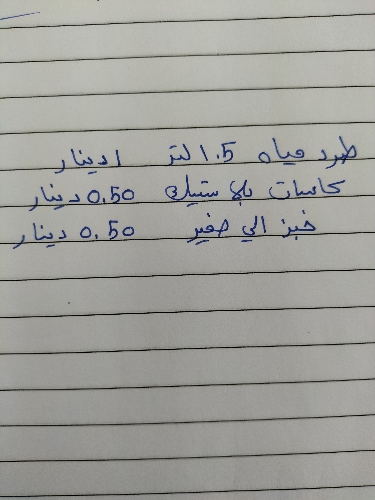 طرد مياه 1.5 لتر 1 دينار
كاسات بلاستيك 0.50 دينار
خبز الي صغير 0.50 دينار